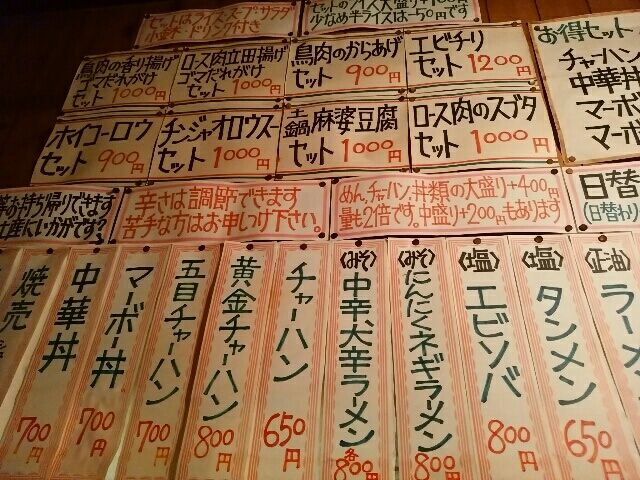 セットはライス、スープ、サラダ
小鉢・ドリンク付き
セットのライス大盛り+100円
少なめ半ライスは-50円です
鳥肉の香り揚げ
ゴマだれがけ
セット 1000円
ロース肉立田揚げ
ゴマだれがけ
セット 1000円
鳥肉のからあげ
セット 900円
エビチリ
セット 1200円
お得セット
チャーハン
中華丼
マーボ
マーボ
ホイコーロウ
セット 900円
チンジャオロウスー
セット 1000円
土鍋麻婆豆腐
セット 1000円
ロース肉のスブタ
セット 1000円
の持ち帰りできます
土産にいかがです?
辛さは調節できます
苦手な方はお申しつけ下さい。
めん、チャーハン、丼類の大盛り+400円
量も2倍です。中盛り+200円もあります
日替
(日替わり
焼売
中華丼
700円
マーボー丼
700円
五目チャーハン
700円
黄金チャーハン
800円
チャーハン
650円
〈みそ〉
中辛、大辛ラーメン
各800円
〈みそ〉
にんにくネギラーメン
800円
〈塩〉
エビソバ
800円
〈塩〉
タンメン
650円
〈正油〉
ラーメ